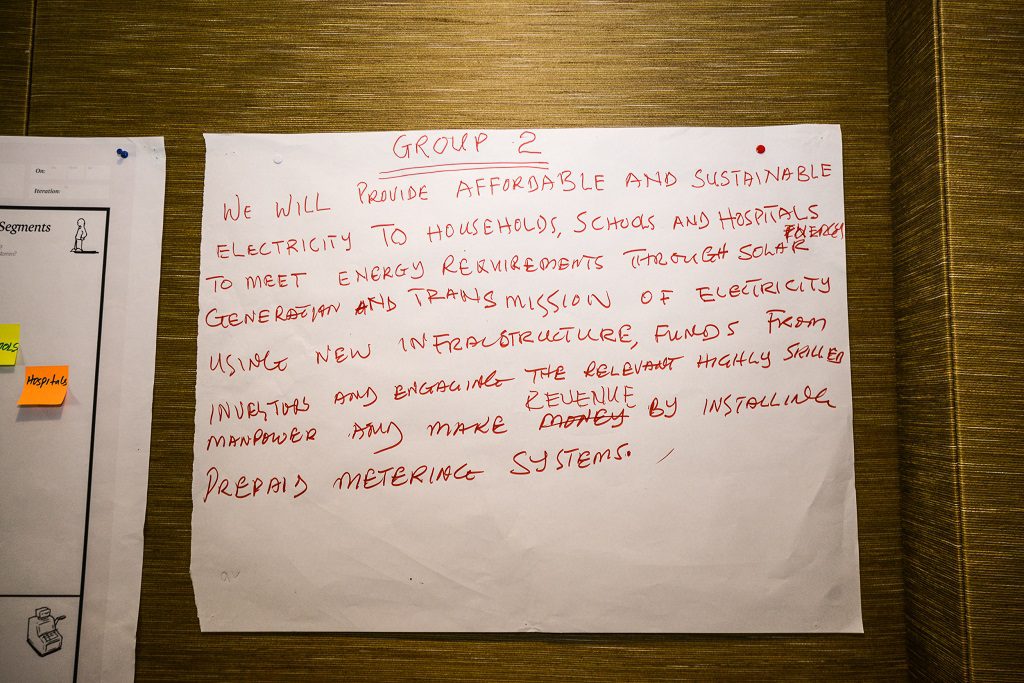 On:
Iteration:
Segments
OOLS
Hospitals
GROUP 2
WE WILL PROVIDE AFFORDABLE AND SUSTAINABLE
ELECTRICITY TO HOUSEHOLDS, SCHOOLS AND HOSPITALS
TO MEET ENERGY REQUIREMENTS THROUGH SOLAR ENERGY
GENERATION AND TRANSMISSION OF ELECTRICITY
USING NEW INFRASTRUCTURE, FUNDS FROM
INVESTORS AND ENGAGING THE RELEVANT HIGHLY SKILLED
MANPOWER AND MAKE MONEY REVENUE BY INSTALLING
PREPAID METERING SYSTEMS.